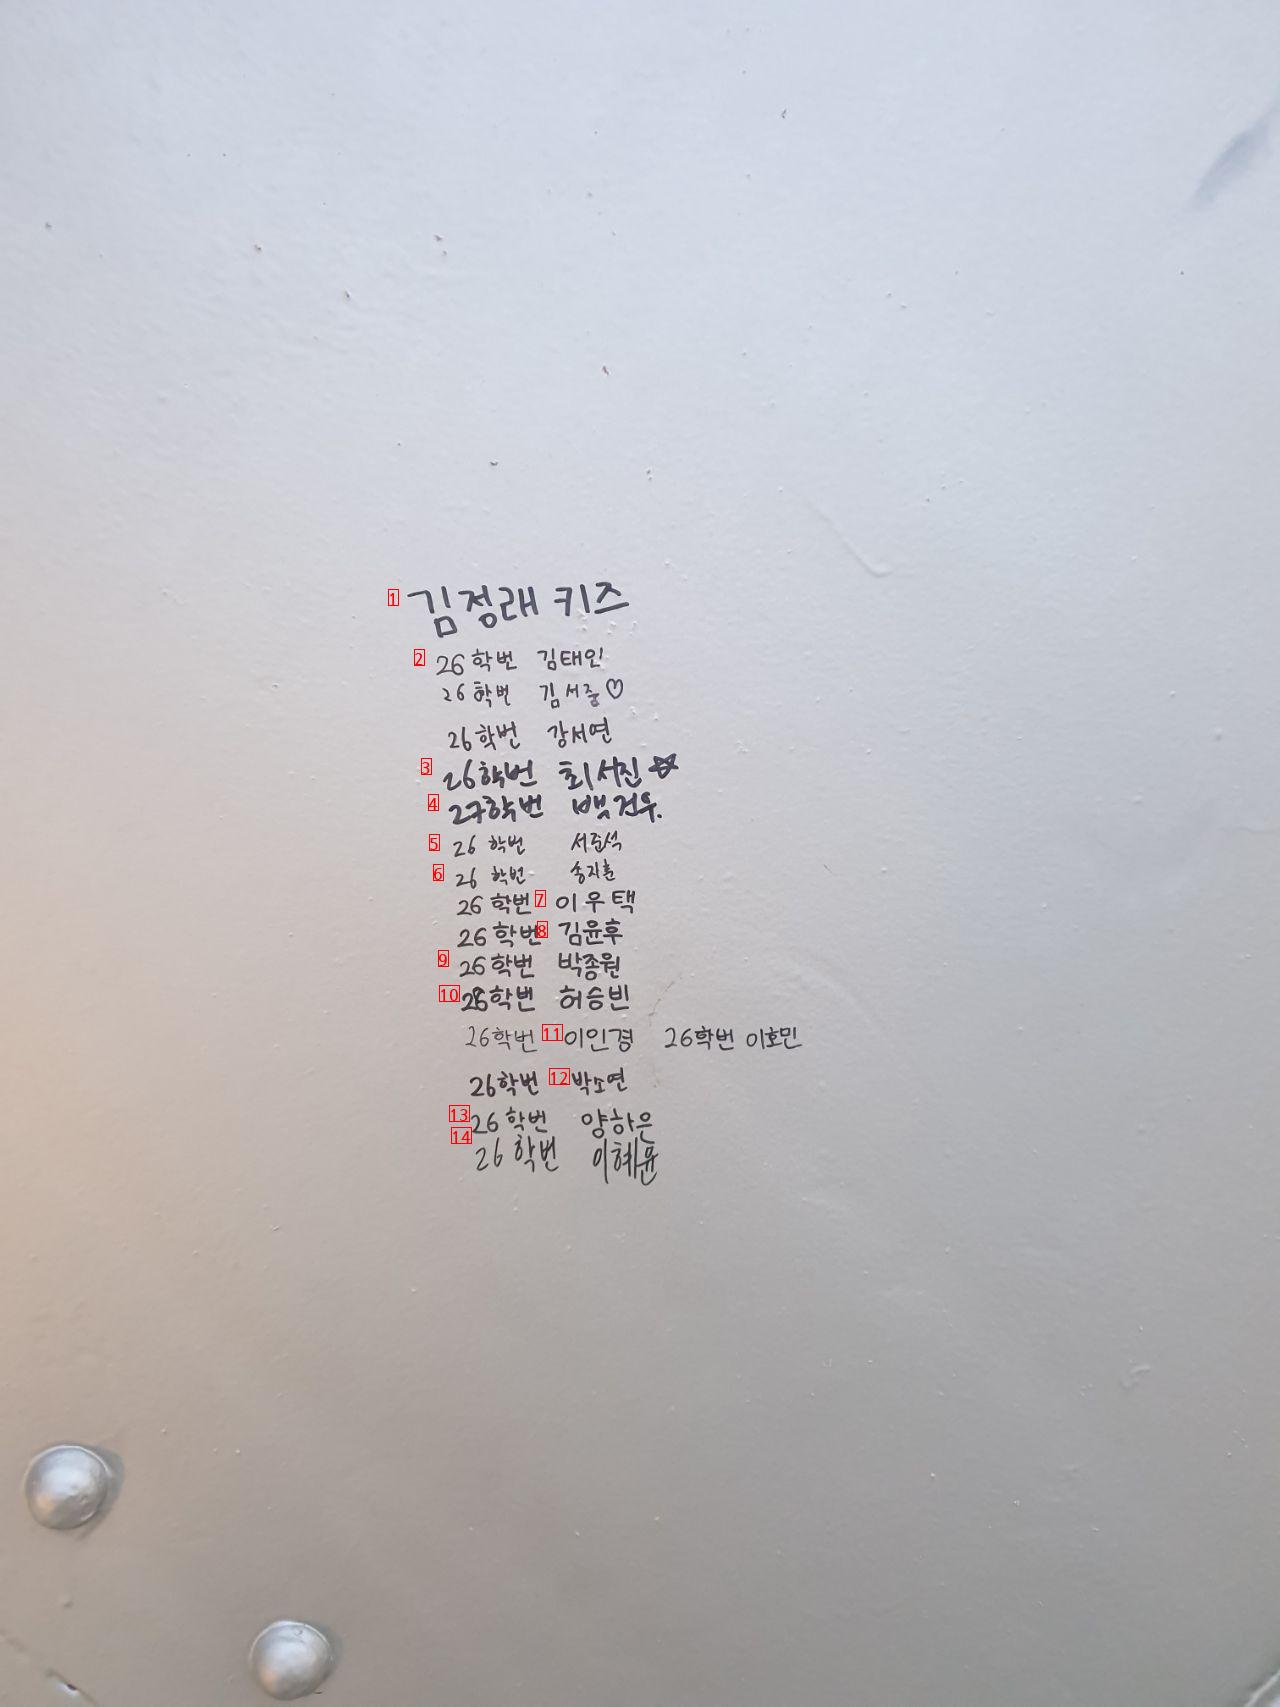 김정래 키즈
26 학번 김태인
26 학번 김서중♡
26 학번 강서연
26학번 최서진☆
27학번 백건우.
26 학번 서준석
26 학번 송지훈
26 학번 이우택
26 학번 김윤후
26 학번 박종원
26학번 허승빈
26학번 이인경 26학번 이호민
26학번 박소연
26 학번 양하은
26 학번 이혜윤